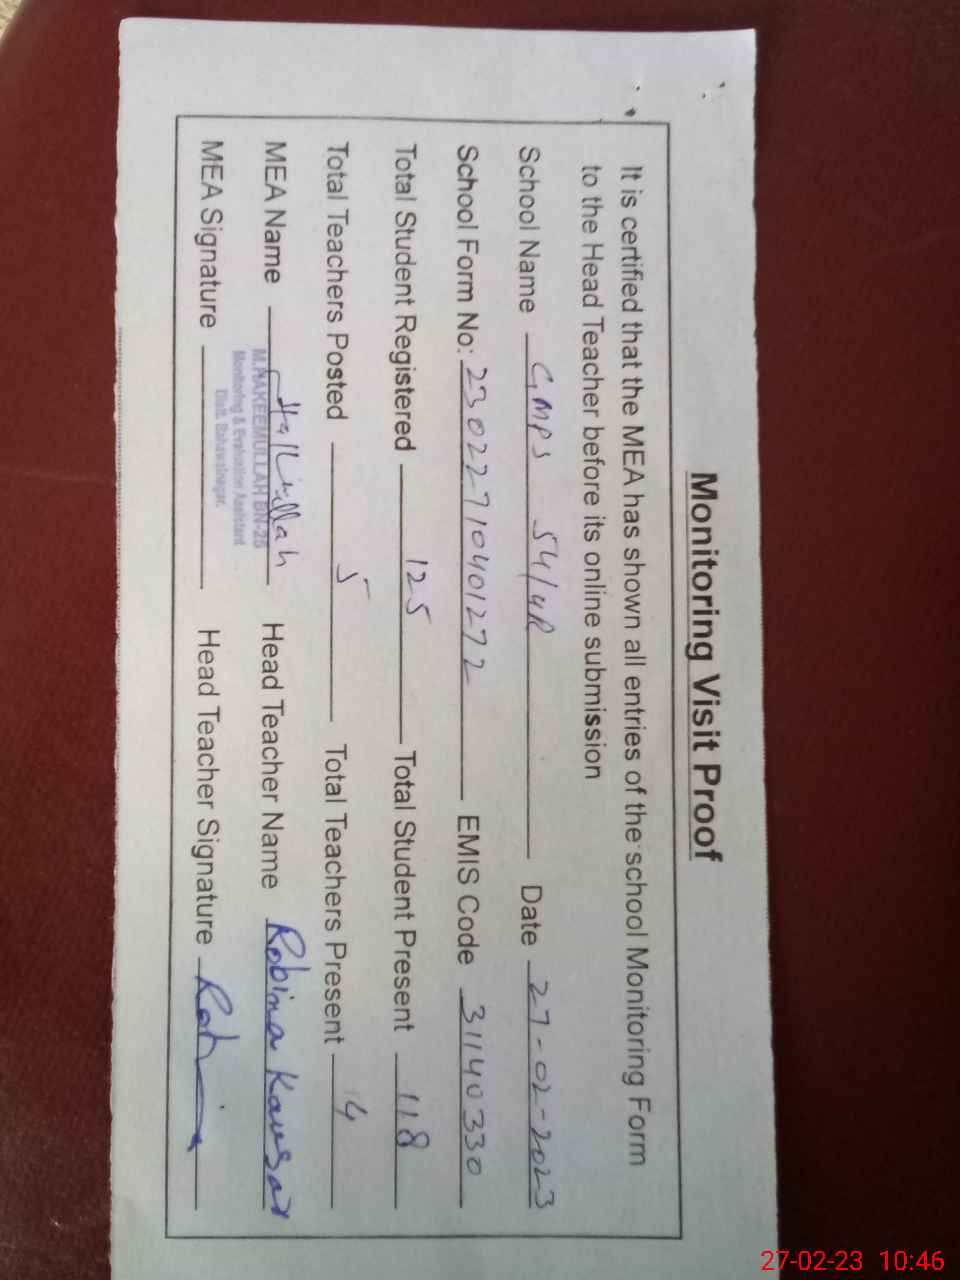 Monitoring Visit Proof
It is certified that the MEA has shown all entries of the school Monitoring Form
to the Head Teacher before its online submission
School Name GMPS 54/4R Date 27-02-2023
School Form No: 230222710401272 EMIS Code 31140330
Total Student Registered 125 Total Student Present 118
Total Teachers Posted 5 Total Teachers Present 4
MEA Name Head Teacher Name Robina Kausar
M.HAKEEMULLAH BN-25
Monitoring & Evaluation Assistant
Distt. Bahawalnagar.
MEA Signature Head Teacher Signature
27-02-23 10:46